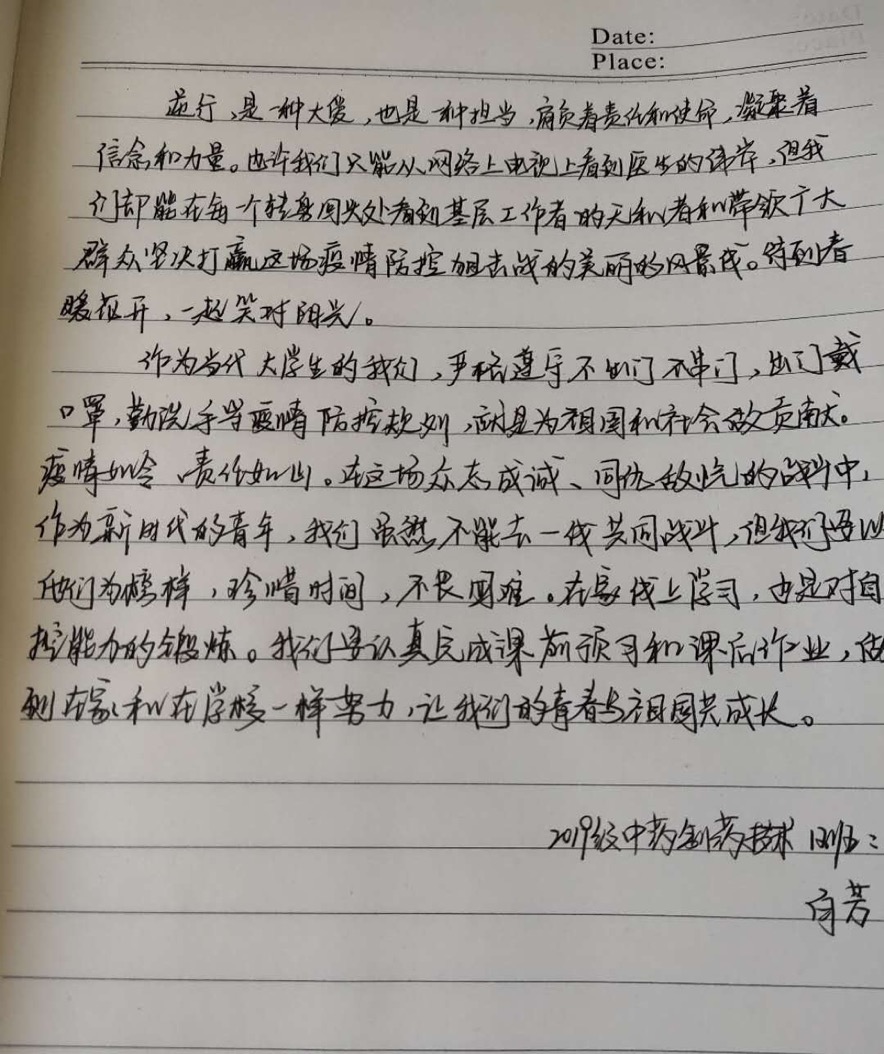 Date:
Place:
逆行,是一种大爱,也是一种担当,肩负着责任和使命,凝聚着
信念和力量。也许我们只能从网络上电视上看到医生的伟岸,但我
们却能在每一个转身回头处看到基层工作者的无私者和带领广大
群众坚决打赢这场疫情防控阻击战的美丽的风景线。待到春
暖花开,一起笑对阳光。
作为当代大学生的我们,严格遵守不出门不串门,出门戴
口罩,勤洗手等疫情防控规则,就是为祖国和社会做贡献。
疫情如令,责任如山。在这场众志成诚、同仇敌忾的战斗中,
作为新时代的青年,我们虽然不能去一线共同战斗,但我们要以
他们为榜样,珍惜时间,不畏困难。在家线上学习,也是对自
控能力的锻炼。我们要认真完成课前预习和课后作业,做
到在家和在学校一样努力,让我们的青春与祖国共成长。
2019级中药制药技术1班:
向芳